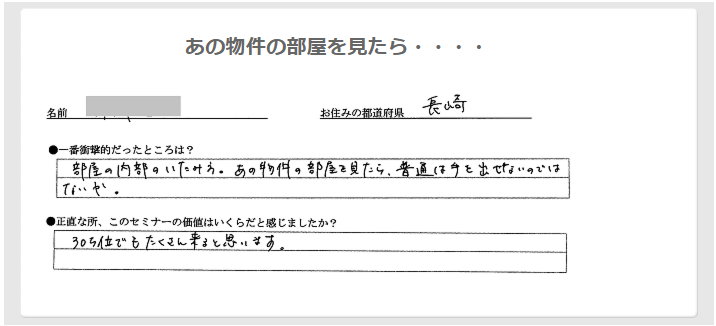 あの物件の部屋を見たら・・・・
名前
お住みの都道府県 長崎
●一番衝撃的だったところは?
部屋の内部のいたみ方。あの物件の部屋を見たら、普通は手を出せないのでは
ないか。
●正直な所、このセミナーの価値はいくらだと感じましたか?
30万位でもたくさん来ると思います。